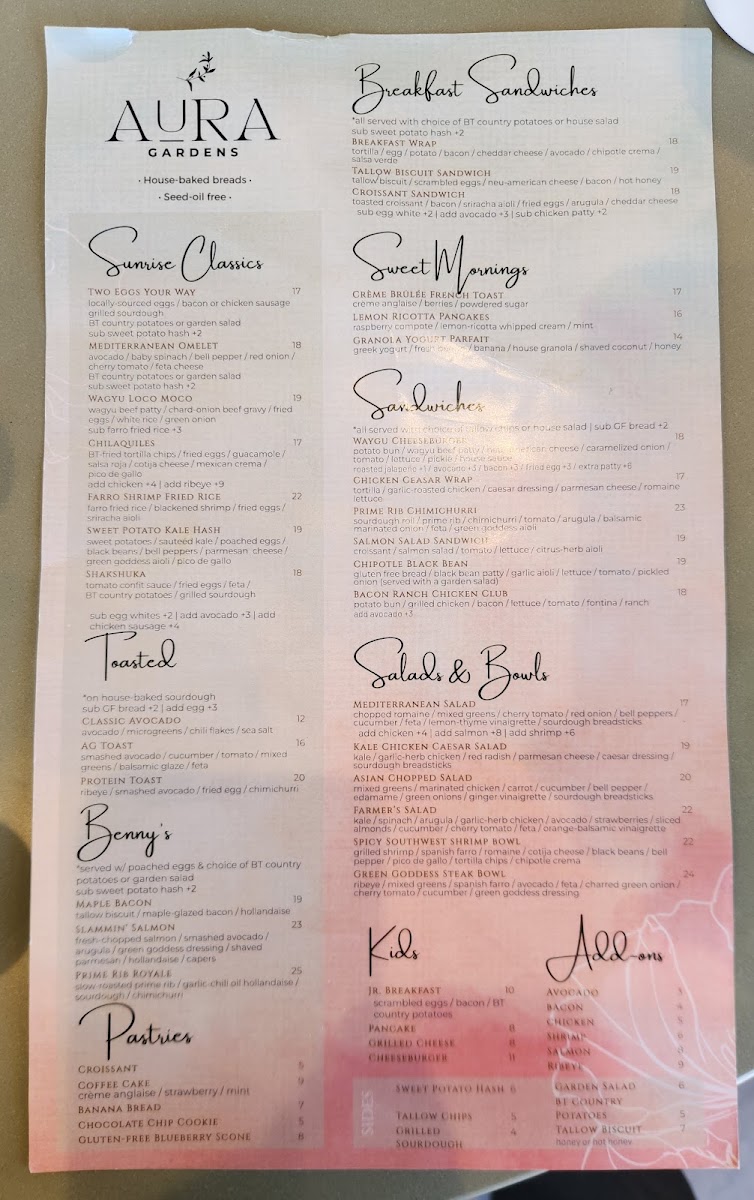 AURA
GARDENS
· House-baked breads ·
· Seed-oil free ·
Sunrise Classics
TWO EGGS YOUR WAY 17
locally-sourced eggs / bacon or chicken sausage
grilled sourdough
BT country potatoes or garden salad
sub sweet potato hash +2
MEDITERRANEAN OMELET 18
avocado / baby spinach / bell pepper / red onion /
cherry tomato / feta cheese
BT country potatoes or garden salad
sub sweet potato hash +2
WAGYU LOCO MOCO 19
wagyu beef patty / chard-onion beef gravy / fried
eggs / white rice / green onion
sub farro fried rice +3
CHILAQUILES 17
BT-fried tortilla chips / fried eggs / guacamole /
salsa roja / cotija cheese / mexican crema /
pico de gallo
add chicken +4 | add ribeye +9
FARRO SHRIMP FRIED RICE 22
farro fried rice / blackened shrimp / fried eggs /
sriracha aioli
SWEET POTATO KALE HASH 19
sweet potatoes / sauteed kale / poached eggs /
black beans / bell peppers / parmesan cheese /
green goddess aioli / pico de gallo
SHAKSHUKA 18
tomato confit sauce / fried eggs / feta /
BT country potatoes / grilled sourdough
sub egg whites +2 | add avocado +3 | add
chicken sausage +4
Toasted
*on house-baked sourdough
sub GF bread +2 | add egg +3
CLASSIC AVOCADO 12
avocado / microgreens / chili flakes / sea salt
AG TOAST 16
smashed avocado / cucumber / tomato / mixed
greens / balsamic glaze / feta
PROTEIN TOAST 20
ribeye / smashed avocado / fried egg / chimichurri
Benny's
*served w/ poached eggs & choice of BT country
potatoes or garden salad
sub sweet potato hash +2
MAPLE BACON 19
tallow biscuit / maple-glazed bacon / hollandaise
SLAMMIN' SALMON 23
fresh-chopped salmon / smashed avocado /
arugula / green goddess dressing / shaved
parmesan / hollandaise / capers
PRIME RIB ROYALE 25
slow-roasted prime rib / garlic-chili oil hollandaise /
sourdough / chimichurri
Pastries
CROISSANT
COFFEE CAKE 9
crème anglaise / strawberry / mint
BANANA BREAD 7
CHOCOLATE CHIP COOKIE 5
GLUTEN-FREE BLUEBERRY SCONE
Breakfast Sandwiches
*all served with choice of BT country potatoes or house salad
sub sweet potato hash +2
BREAKFAST WRAP 18
tortilla / egg / potato / bacon / cheddar cheese / avocado / chipotle crema /
salsa verde
TALLOW BISCUIT SANDWICH 19
tallow biscuit / scrambled eggs / neu-american cheese / bacon / hot honey
CROISSANT SANDWICH 18
toasted croissant / bacon / sriracha aioli / fried eggs / arugula / cheddar cheese
sub egg white +2 | add avocado +3 | sub chicken patty +2
Sweet Mornings
CRÈME BRÛLÉE FRENCH TOAST 17
creme anglaise / berries / powdered sugar
LEMON RICOTTA PANCAKES 16
raspberry compote / lemon-ricotta whipped cream / mint
GRANOLA YOGURT PARFAIT 14
greek yogurt / fresh berries / banana / house granola / shaved coconut / honey
Sandwiches
*all served with choice of tallow chips or house salad | sub GF bread +2
WAYGU CHEESEBURGER 18
potato bun / wagyu beef patty / neu-american cheese / caramelized onion /
tomato / lettuce / pickle / house sauce
roasted jalapeño +1 / avocado +3 / bacon +3 / fried egg +3 / extra patty +6
CHICKEN CEASAR WRAP 17
tortilla / garlic-roasted chicken / caesar dressing / parmesan cheese / romaine
lettuce
PRIME RIB CHIMICHURRI 23
sourdough roll / prime rib / chimichurri / tomato / arugula / balsamic
marinated onion / feta / green goddess aioli
SALMON SALAD SANDWICH 19
croissant / salmon salad / tomato / lettuce / citrus-herb aioli
CHIPOTLE BLACK BEAN 19
gluten free bread / black bean patty / garlic aioli / lettuce / tomato / pickled
onion (served with a garden salad)
BACON RANCH CHICKEN CLUB 18
potato bun / grilled chicken / bacon / lettuce / tomato / fontina / ranch
add avocado +3
Salads & Bowls
MEDITERRANEAN SALAD 17
chopped romaine / mixed greens / cherry tomato / red onion / bell peppers /
cucumber / feta / lemon-thyme vinaigrette / sourdough breadsticks
add chicken +4 | add salmon +8 | add shrimp +6
KALE CHICKEN CAESAR SALAD 19
kale / garlic-herb chicken / red radish / parmesan cheese / caesar dressing /
sourdough breadsticks
ASIAN CHOPPED SALAD 20
mixed greens / marinated chicken / carrot / cucumber / bell pepper /
edamame / green onions / ginger vinaigrette / sourdough breadsticks
FARMER'S SALAD 22
kale / spinach / arugula / garlic-herb chicken / avocado / strawberries / sliced
almonds / cucumber / cherry tomato / feta / orange-balsamic vinaigrette
SPICY SOUTHWEST SHRIMP BOWL 22
grilled shrimp / spanish farro / romaine / cotija cheese / black beans / bell
pepper / pico de gallo / tortilla chips / chipotle crema
GREEN GODDESS STEAK BOWL 24
ribeye / mixed greens / spanish farro / avocado / feta / charred green onion /
cherry tomato / cucumber / green goddess dressing
Kids
JR. BREAKFAST 10
scrambled eggs / bacon / BT
country potatoes
PANCAKE 8
GRILLED CHEESE 8
CHEESEBURGER 11
Add-ons
AVOCADO 3
BACON 4
CHICKEN 5
SHRIMP
SALMON
RIBEYE 9
SIDES
SWEET POTATO HASH 6
TALLOW CHIPS 5
GRILLED 4
SOURDOUGH
GARDEN SALAD 6
BT COUNTRY
POTATOES 5
TALLOW BISCUIT 7
honey or hot honey